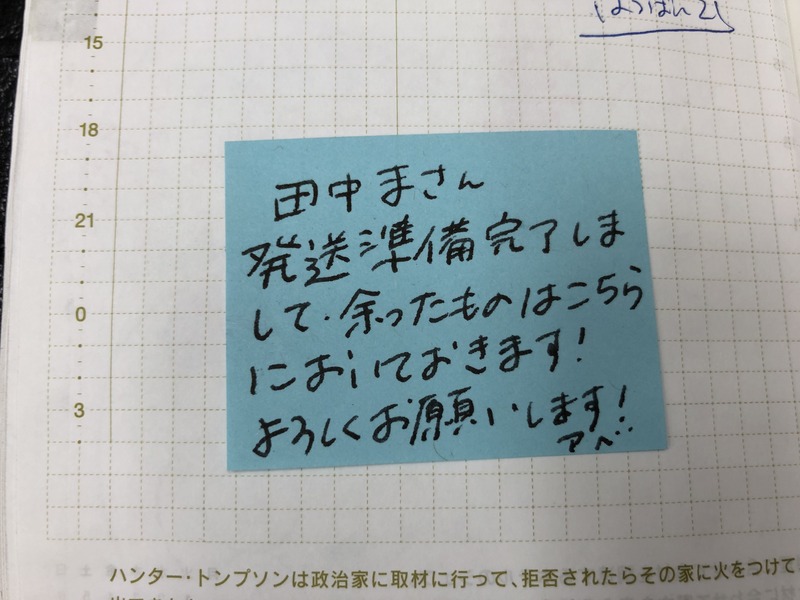 15
18
21
0
3
田中まさん
発送準備完了しま
して、余ったものはこちら
においておきます!
よろしくお願いします!
アベ
ハンター・トンプソンは政治家に取材に行って、拒否されたらその家に火をつけて